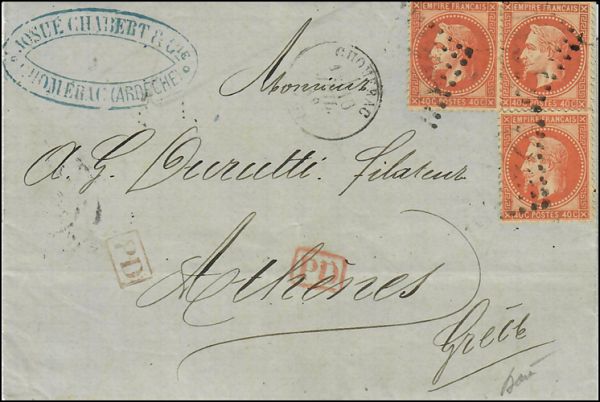 JOSUÉ CHABERT & CIE
CHOMÉRAC (ARDÈCHE)
CHOMERAC
EMPIRE FRANÇAIS
40C POSTES 40C
EMPIRE FRANÇAIS
40C POSTES 40C
EMPIRE FRANÇAIS
40C POSTES 40C
Monsieur
A. G. Durutti filateur
PD
PD
Athènes
Grèce